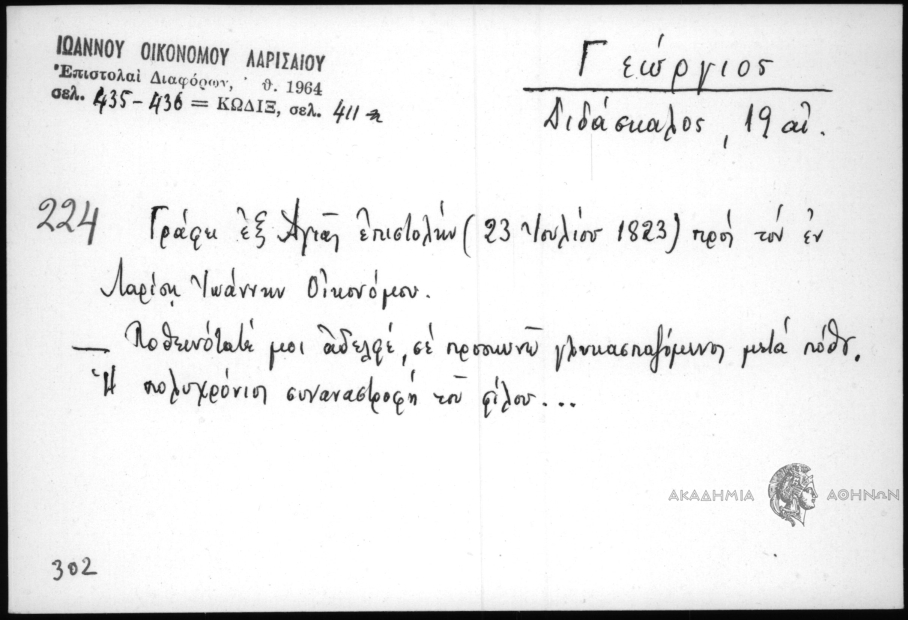 ΙΩΑΝΝΟΥ ΟΙΚΟΝΟΜΟΥ ΛΑΡΙΣΑΙΟΥ
Ἐπιστολαὶ Διαφόρων, θ. 1964
σελ. 435-436 = ΚΩΔΙΞ, σελ. 411
Γεώργιος
Διδάσκαλος, 19 αἰ.
224 Γράφει ἐξ Ἁγιᾶς ἐπιστολήν (23 Ἰουλίου 1823) πρός τόν ἐν
Λαρίσῃ Ἰωάννην Οἰκονόμου.
— Ποθεινότατέ μοι ἀδελφέ, σέ προσκυνῶ γλυκασπαζόμενος μετά πόθου.
Ἡ πολυχρόνιος συναναστροφή τοῦ φίλου...
ΑΚΑΔΗΜΙΑ ΑΘΗΝΩΝ
302